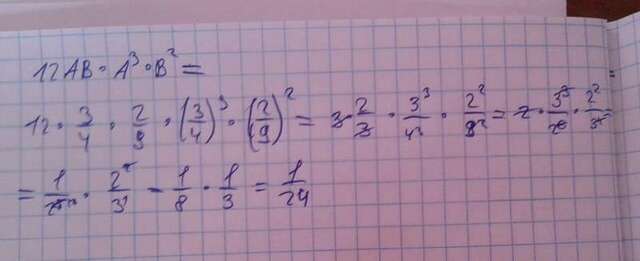 12AB · A³ · B² =
12 · 3/4 · 2/9 · (3/4)³ · (2/9)² = 3 · 2/3 · 3³/4³ · 2²/9² = 2 · 3³/2⁶ · 2²/3⁴ =
= 1/2⁵ · 2²/3¹ = 1/8 · 1/3 = 1/24